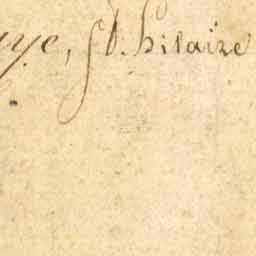 ye, St. hilaire